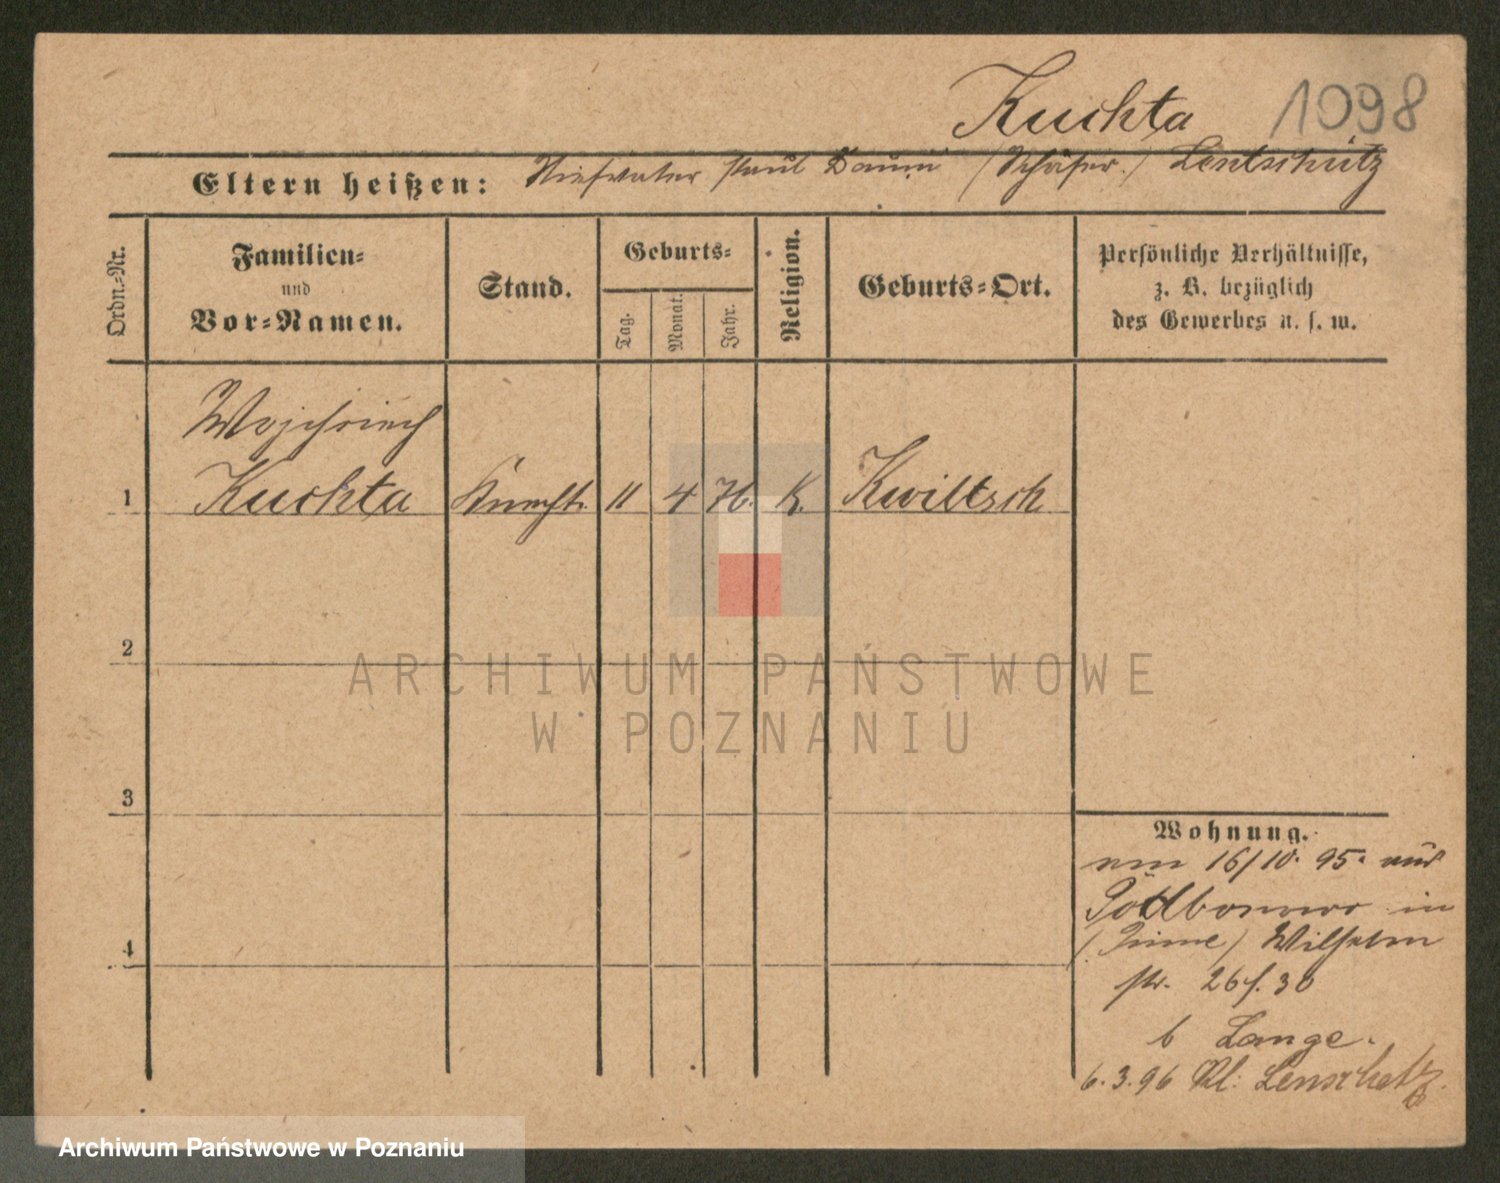 Kuchta 1098
Eltern heißen: Stiefvater Paul Daum (Schäfer.) Lentschütz
Ordn.-Nr.
Familien-
und
Vor-Namen.
Stand.
Geburts-
Tag.
Monat.
Jahr.
Religion.
Geburts-Ort.
Persönliche Verhältnisse,
z. B. bezüglich
des Gewerbes u. s. w.
Wojchiech
1 Kuchta Knecht. 11 4 76. K. Kwiltsch
2
3
4
Wohnung.
am 16/10. 95. aus
in
(Pinne) Wilhelm
str. 26 f. 30
b Lange.
6.3.96 Kl: Lenschetz.
ARCHIWUM PAŃSTWOWE
W POZNANIU
Archiwum Państwowe w Poznaniu